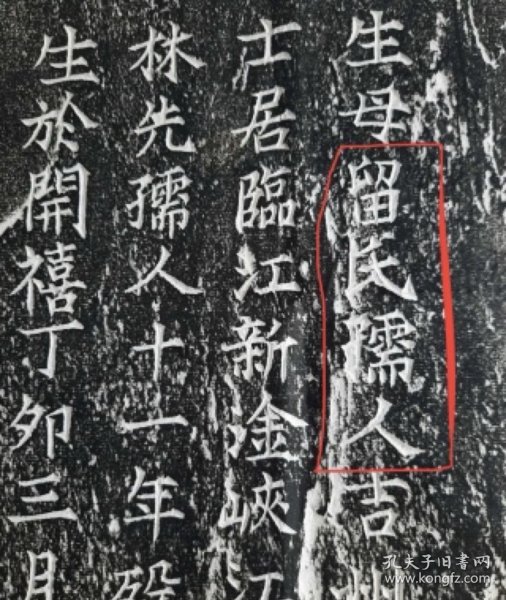 生母留民孺人吉州
士居臨江新淦峽江
林先孺人十一年殁
生於開禧丁卯三月
孔夫子旧书网
www.kongfz.com